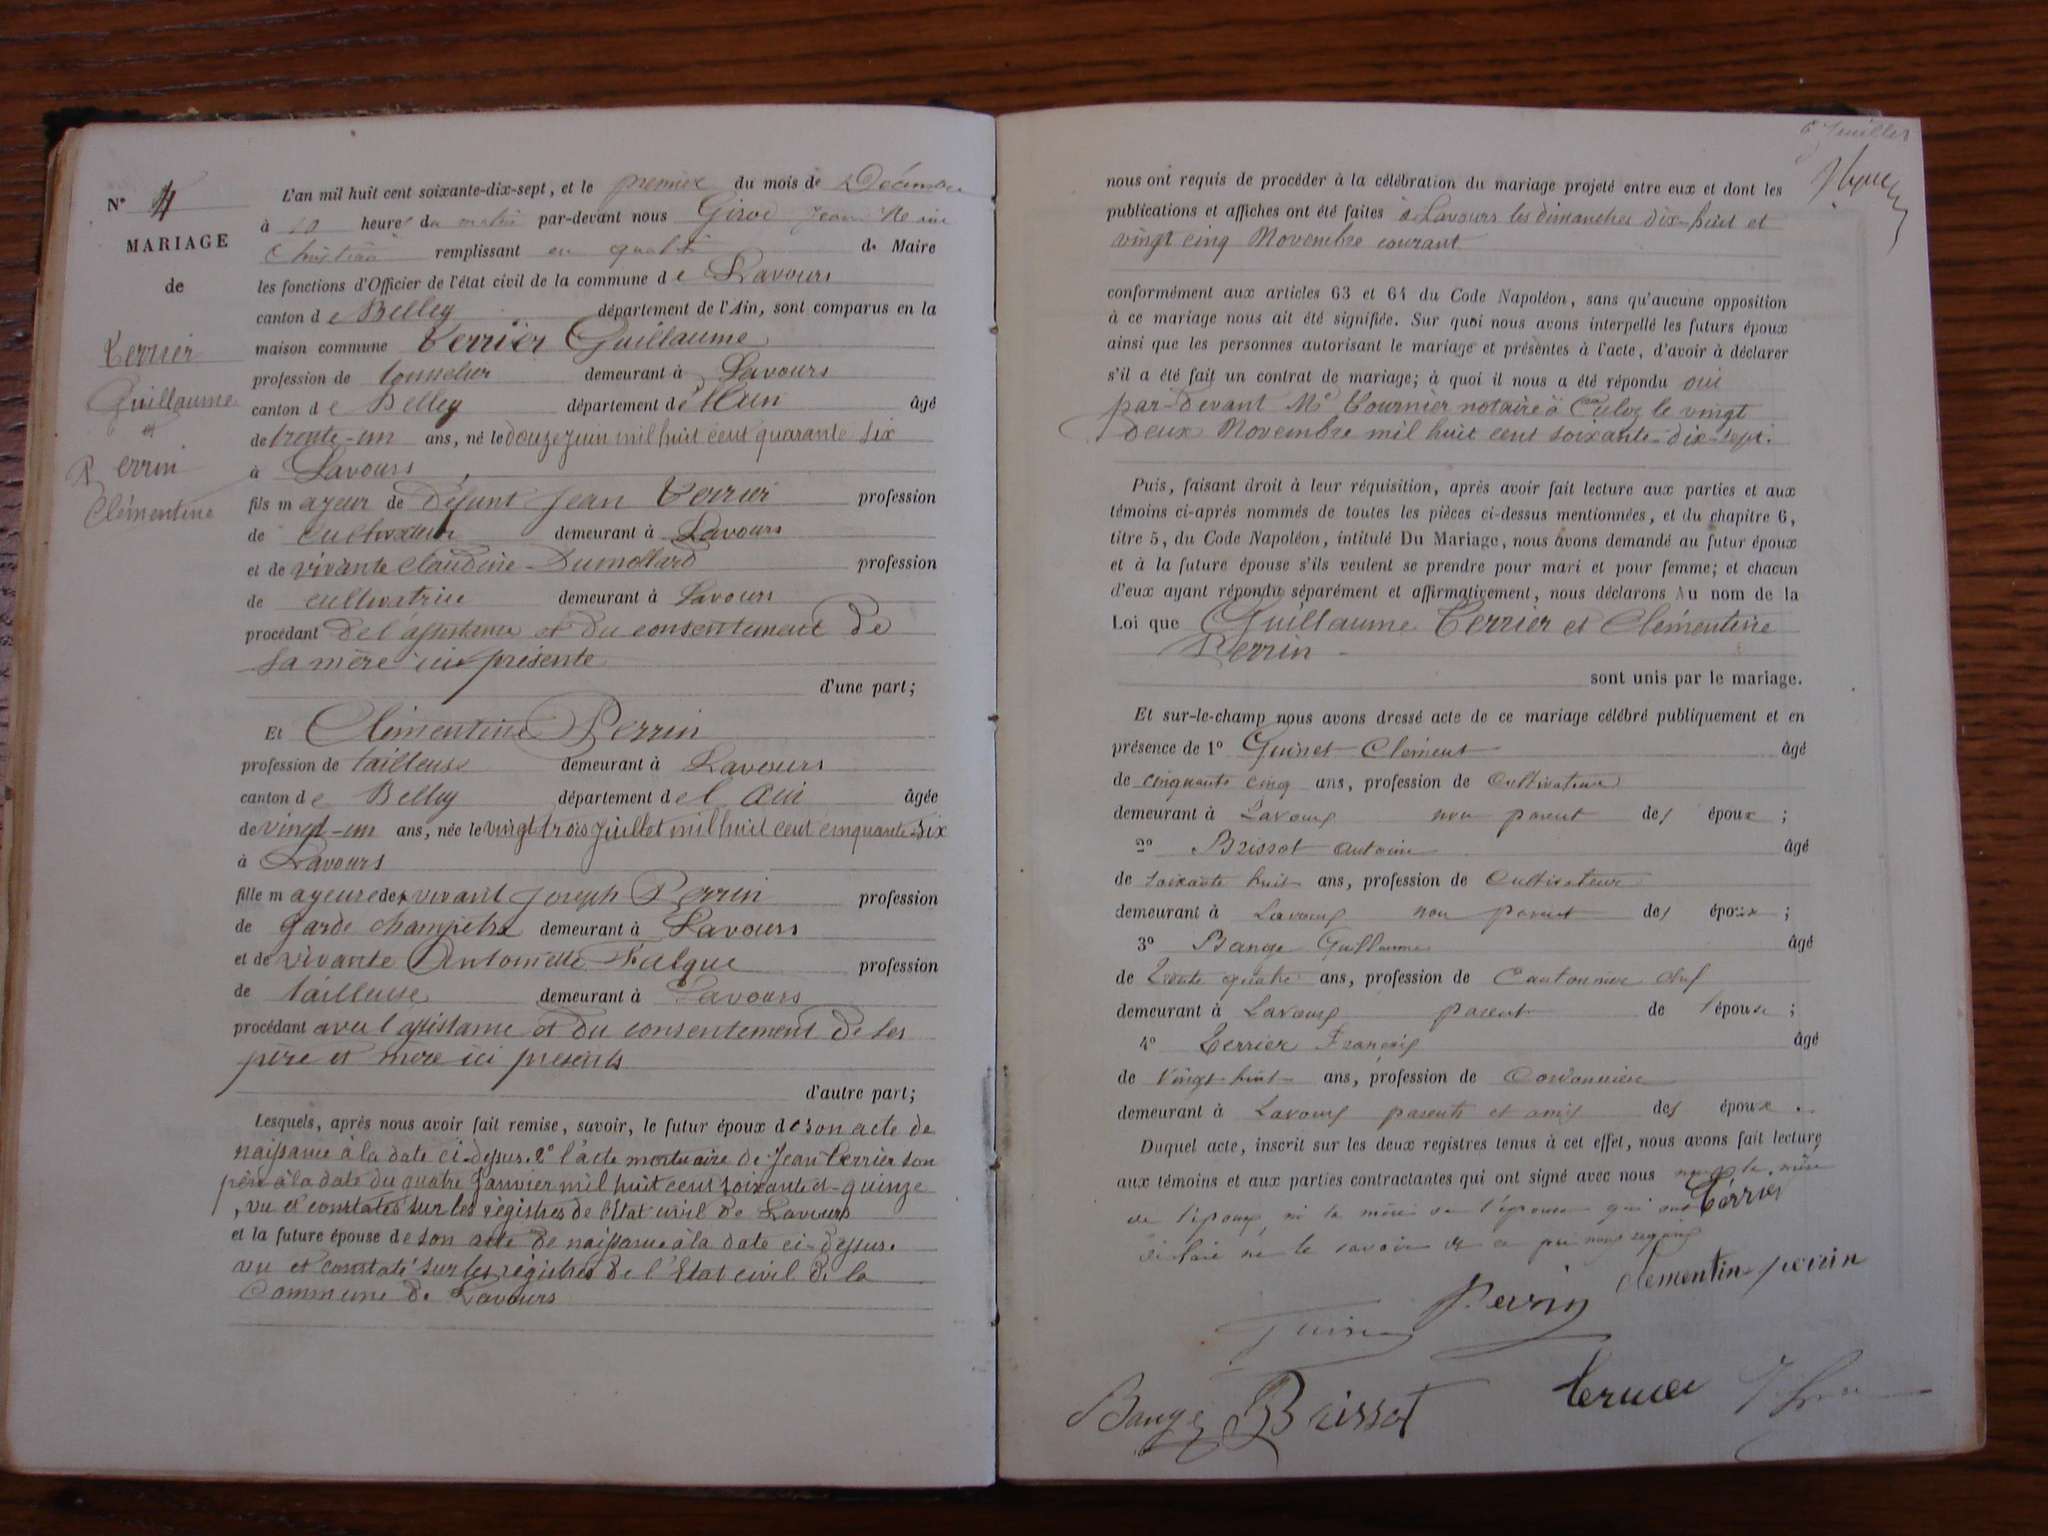 N° 4
MARIAGE
de
Terrier
Guillaume
et
Perrin
Clémentine
L'an mil huit cent soixante-dix-sept, et le premier du mois de Décembre
à 10 heures du matin par-devant nous Girod Jean
remplissant en qualité de Maire
les fonctions d'Officier de l'état civil de la commune de Lavours
canton de Belley département de l'Ain, sont comparus en la
maison commune Terrier Guillaume
profession de tonnelier demeurant à Lavours
canton de Belley département de l'Ain âgé
de trente-un ans, né le douze juin mil huit cent quarante six
à Lavours
fils mayeur de Défunt Jean Terrier profession
de cultivateur demeurant à Lavours
et de vivante Claudine Dumollard profession
de cultivatrice demeurant à Lavours
procédant de l'assistance et du consentement de
sa mère ici présente
d'une part;
Et Clémentine Perrin
profession de tailleuse demeurant à Lavours
canton de Belley département de l'Ain âgée
de vingt-un ans, née le vingt trois juillet mil huit cent cinquante-six
à Lavours
fille mayeure de vivant Joseph Perrin profession
de garde champêtre demeurant à Lavours
et de vivante Antoinette Falque profession
de tailleuse demeurant à Lavours
procédant avec l'assistance et du consentement de ses
père et mère ici présents
d'autre part;
Lesquels, après nous avoir fait remise, savoir, le futur époux de son acte de
naissance à la date ci-dessus. 2° l'acte mortuaire de Jean Terrier son
père à la date du quatre Janvier mil huit cent soixante et-quinze
, vu et constatés sur les régistres de l'Etat civil de Lavours
et la future épouse de son acte de naissance à la date ci-dessus.
vu et constaté sur les régistres de l'Etat civil de la
Commune de Lavours
6e feuillet
nous ont requis de procéder à la célébration du mariage projeté entre eux et dont les
publications et affiches ont été faites à Lavours les dimanches dix-huit et
vingt cinq Novembre courant
conformément aux articles 63 et 64 du Code Napoléon, sans qu'aucune opposition
à ce mariage nous ait été signifiée. Sur quoi nous avons interpellé les futurs époux
ainsi que les personnes autorisant le mariage et présentes à l'acte, d'avoir à déclarer
s'il a été fait un contrat de mariage; à quoi il nous a été répondu oui
par-devant Me Tournier notaire à Culoz le vingt
deux Novembre mil huit cent soixante-dix-sept.
Puis, faisant droit à leur réquisition, après avoir fait lecture aux parties et aux
témoins ci-après nommés de toutes les pièces ci-dessus mentionnées, et du chapitre 6,
titre 5, du Code Napoléon, intitulé Du Mariage, nous avons demandé au futur époux
et à la future épouse s'ils veulent se prendre pour mari et pour femme; et chacun
d'eux ayant répondu séparément et affirmativement, nous déclarons Au nom de la
Loi que Guillaume Terrier et Clémentine
Perrin
sont unis par le mariage.
Et sur-le-champ nous avons dressé acte de ce mariage célébré publiquement et en
présence de 1° Guinet Clément âgé
de cinquante cinq ans, profession de Cultivateur
demeurant à Lavours non parent des époux ;
2° Brissot Antoine âgé
de soixante huit ans, profession de Cultivateur
demeurant à Lavours non parent des époux ;
3° Bange Guillaume âgé
de trente quatre ans, profession de Cantonnier chef
demeurant à Lavours parent de l'épouse ;
4° Terrier François âgé
de vingt-huit ans, profession de Cordonnier
demeurant à Lavours parents et amis des époux .
Duquel acte, inscrit sur les deux registres tenus à cet effet, nous avons fait lecture
aux témoins et aux parties contractantes qui ont signé avec nous non la mère
de l'époux, ni la mère de l'épouse qui ont
déclaré ne le savoir de ce par nous requis
Terrier
clementine perrin
Perrin
Guinet
Bange Brissot Terrier